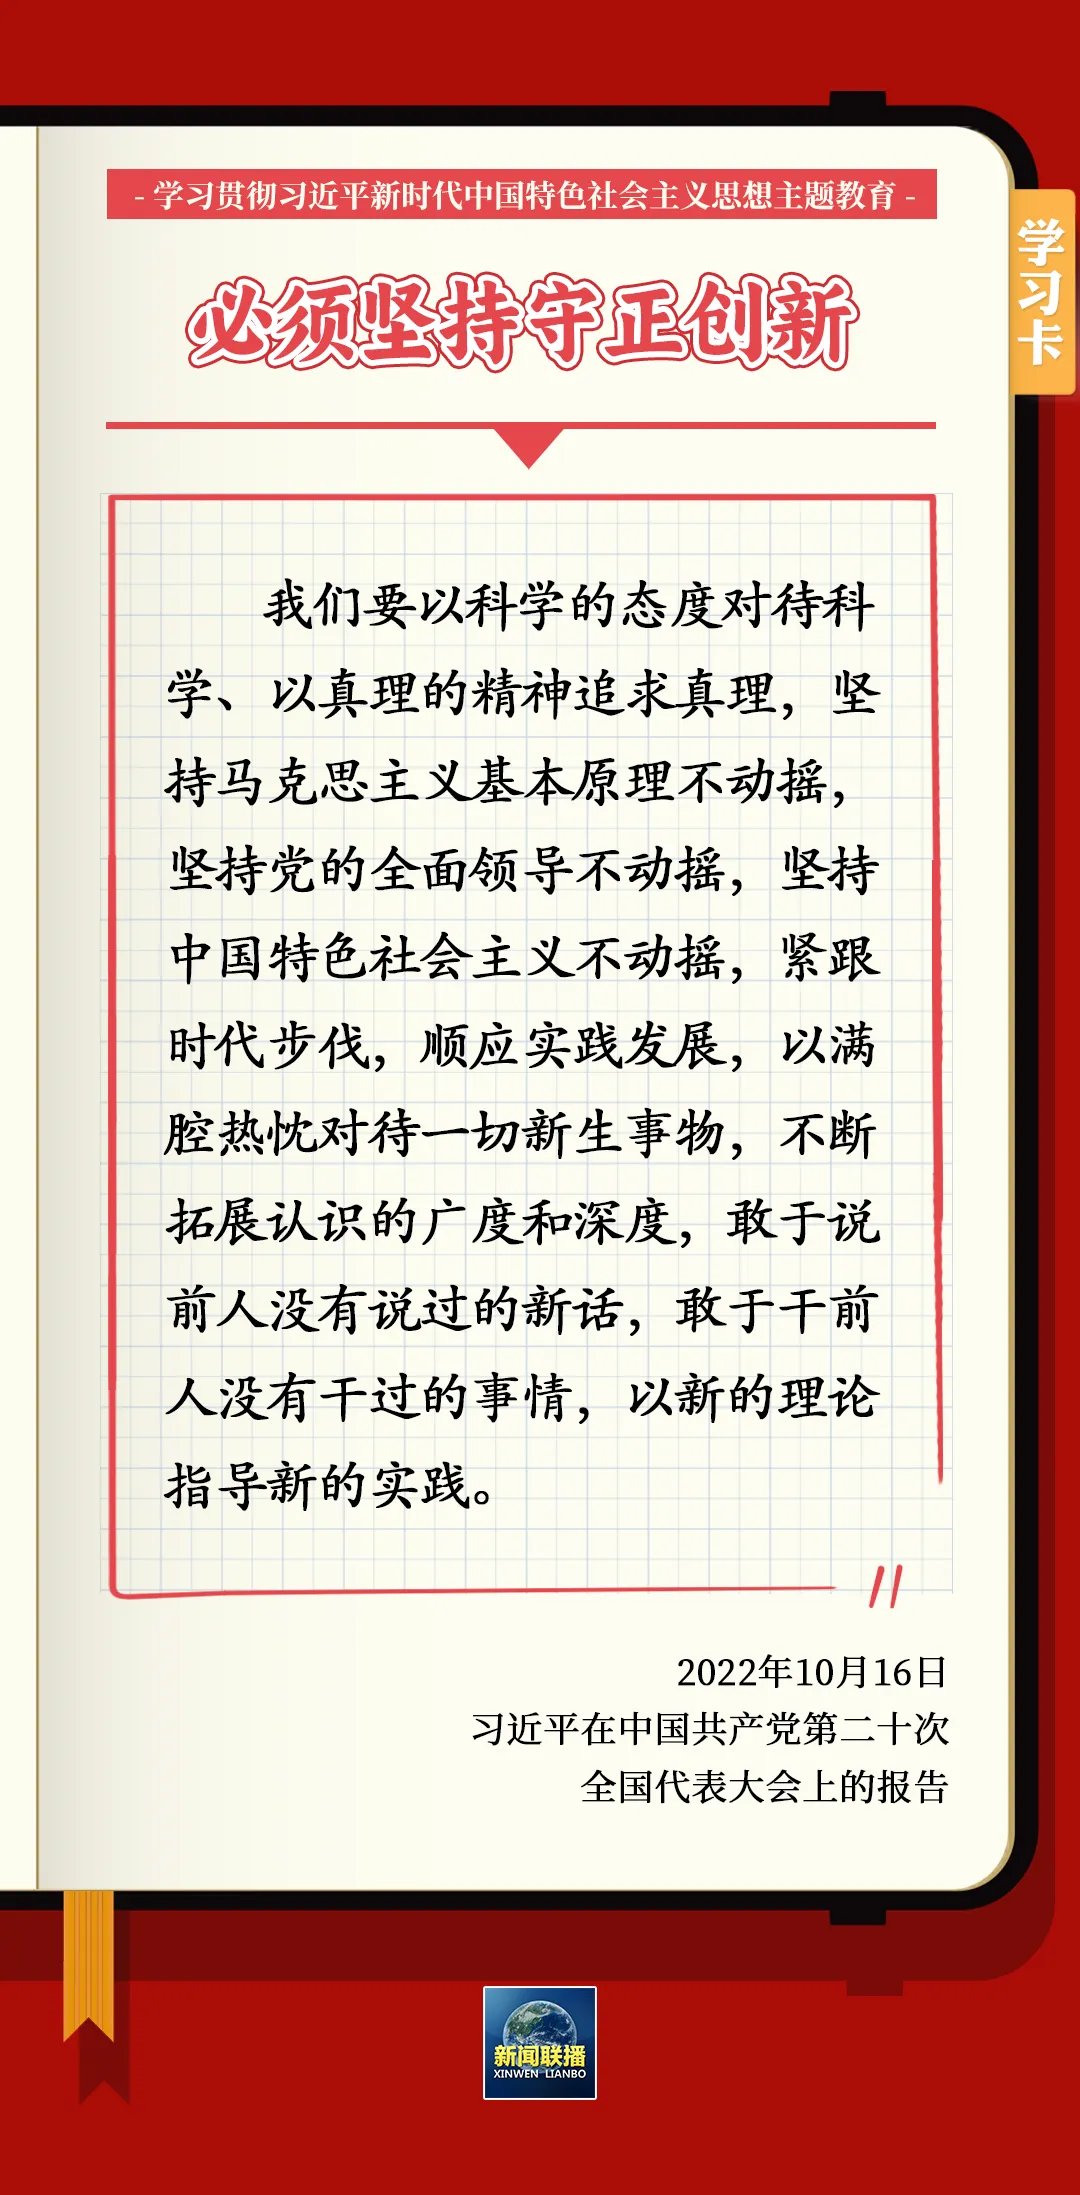 - 学习贯彻习近平新时代中国特色社会主义思想主题教育 -
学习卡
必须坚持守正创新
我们要以科学的态度对待科
学、以真理的精神追求真理，坚
持马克思主义基本原理不动摇，
坚持党的全面领导不动摇，坚持
中国特色社会主义不动摇，紧跟
时代步伐，顺应实践发展，以满
腔热忱对待一切新生事物，不断
拓展认识的广度和深度，敢于说
前人没有说过的新话，敢于干前
人没有干过的事情，以新的理论
指导新的实践。
2022年10月16日
习近平在中国共产党第二十次
全国代表大会上的报告
新闻联播
XINWEN LIANBO